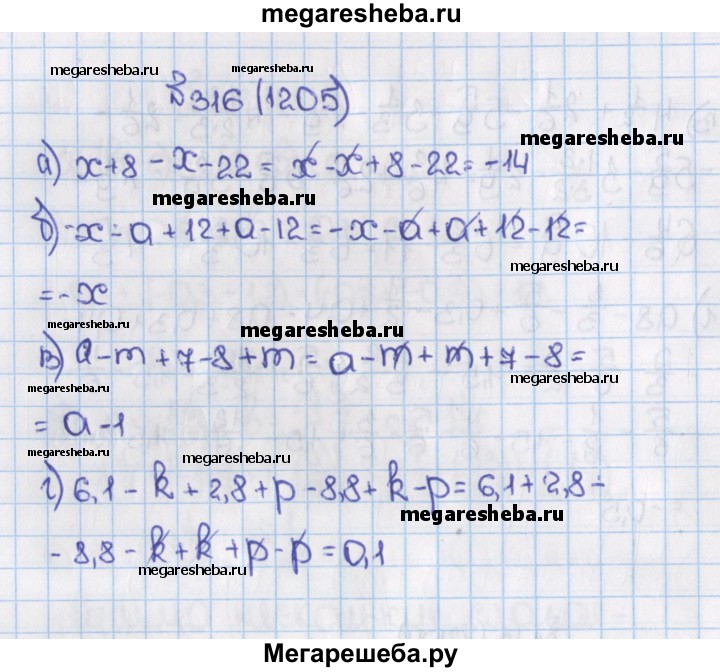 megaresheba.ru
megaresheba.ru megaresheba.ru
№316 (1205)
megaresheba.ru
а) x+8 - x - 22 = x - x + 8 - 22 = -14
megaresheba.ru
б) -x - a + 12 + a - 12 = -x - a + a + 12 - 12 =
megaresheba.ru
= - x
megaresheba.ru
megaresheba.ru
в) a - m + 7 - 8 + m = a - m + m + 7 - 8 =
megaresheba.ru
megaresheba.ru
= a - 1
megaresheba.ru
megaresheba.ru
г) 6,1 - k + 2,8 + p - 8,8 + k - p = 6,1 + 2,8 -
megaresheba.ru
- 8,8 - k + k + p - p = 0,1
megaresheba.ru
Мегарешеба.ру